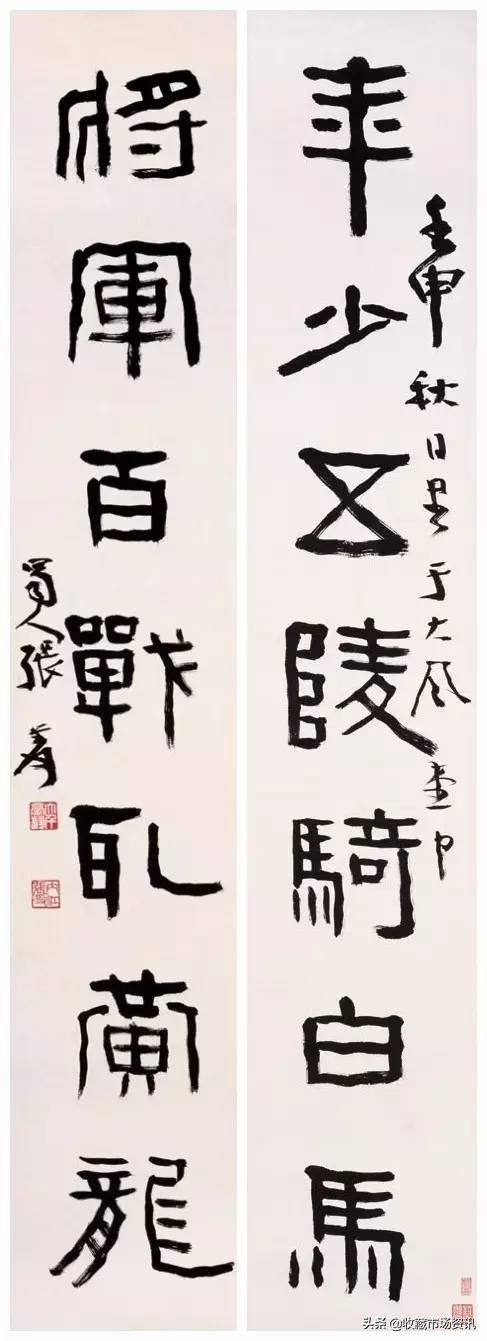 年少五陵騎白馬
壬申秋日書于大風堂中
將軍百戰取黃龍
蜀人張爰
头条 @收藏市场资讯